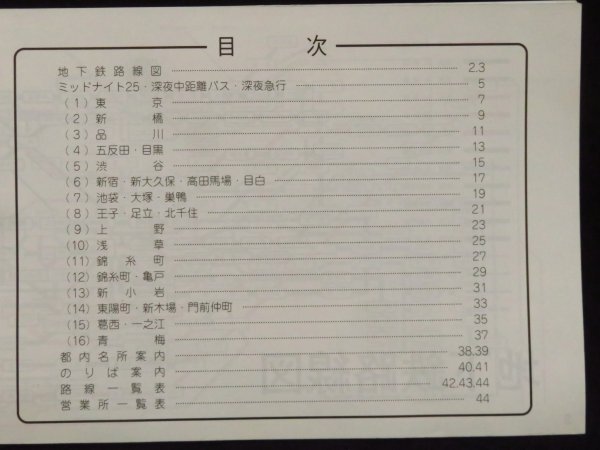 目 次
地下鉄路線図 2.3
ミッドナイト25・深夜中距離バス・深夜急行 5
(1) 東 京 7
(2) 新 橋 9
(3) 品 川 11
(4) 五反田・目黒 13
(5) 渋 谷 15
(6) 新宿・新大久保・高田馬場・目白 17
(7) 池袋・大塚・巣鴨 19
(8) 王子・足立・北千住 21
(9) 上 野 23
(10) 浅 草 25
(11) 錦 糸 町 27
(12) 錦糸町・亀戸 29
(13) 新 小 岩 31
(14) 東陽町・新木場・門前仲町 33
(15) 葛西・一之江 35
(16) 青 梅 37
都内名所案内 38.39
のりば案内 40.41
路線一覧表 42.43.44
営業所一覧表 44